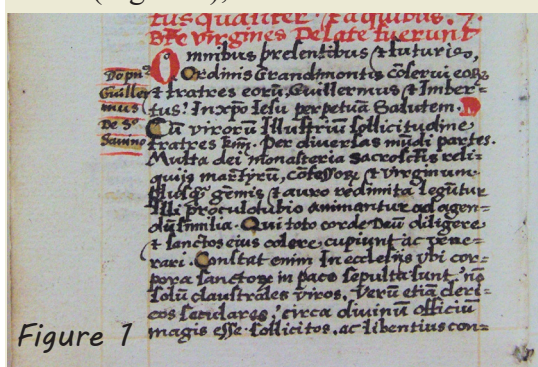 tus qualiter. & a quibus. 7.
Dte virgines Delate fuerunt
Omnibus presentibus & futuris,
Ordinis Grandimontis cōfervi eorꝫ
& fratres eorū, Guillermus & Imber-
tus? In xpo Iesu perpetuā Salutem.
Cū virorū Illustriū sollicitudine
fratres . Per diversas mūdi partes.
Multa dei monasteria sacrosctis reli-
quijs martyrū, cōfessorꝫ & virginum.
gēmis & auro redimita legūtur
Illi procul dubio animantur ad agen-
dū similia. Qui toto corde Deū diligere
& sanctos eius colere cupiunt ac vene-
rari. Constat enim In ecclesijs vbi cor-
pora sanctorꝫ in pace sepulta sunt, nō
solū claustrales viros, verū etiā cleri-
cos seculares, circa divinū officiū
magis esse sollicitos, ac libentius con-
Guiller
mus
De
Savino
Figure 1